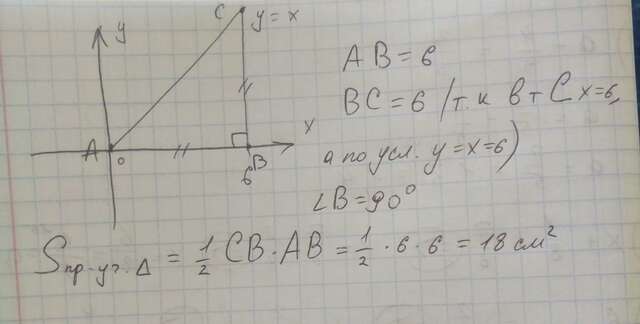 C y = x
y
AB = 6
BC = 6 (т.к в т C x=6,
x
A
0
6
B
а по усл. y=x=6)
∠B=90°
Sпр-уг.Δ = 1/2 CB·AB = 1/2 · 6 · 6 = 18 см²